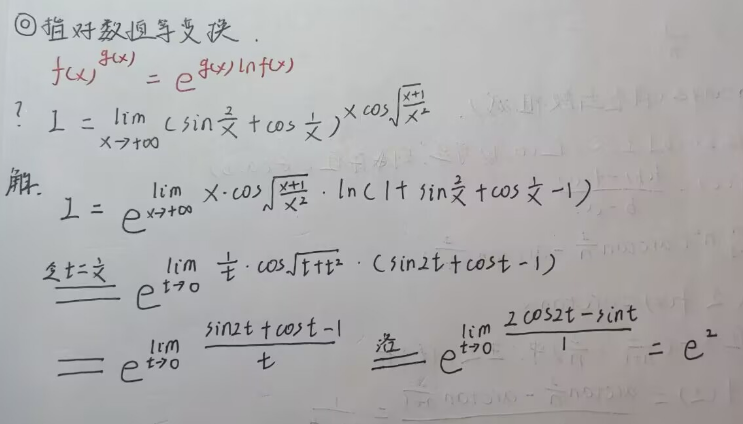 ◎指对数恒等变换.
f(x)^{g(x)} = e^{g(x) ln f(x)}
? I = lim_{x→+∞} (sin 2/x + cos 1/x)^{x cos √((x+1)/x²)}
解. I = e^{lim_{x→+∞} x·cos √((x+1)/x²) · ln(1 + sin 2/x + cos 1/x - 1)}
令 t = 1/x = e^{lim_{t→0} 1/t · cos √(t+t²) · (sin2t + cost - 1)}
= e^{lim_{t→0} (sin2t + cost - 1)/t} 洛 = e^{lim_{t→0} (2cos2t - sint)/1} = e²